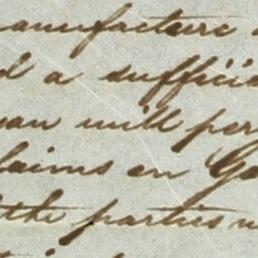 manufacture
d a suffici
man will per
laims on Go
the parties